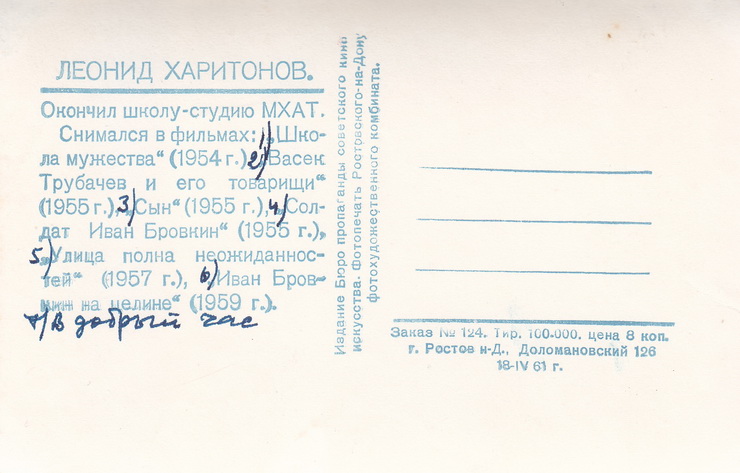 ЛЕОНИД ХАРИТОНОВ.
Окончил школу-студию МХАТ.
Снимался в фильмах: 1) „Шко-
ла мужества“ (1954 г.), 2) „Васек
Трубачев и его товарищи“
(1955 г.), 3) „Сын“ (1955 г.), 4) „Сол-
дат Иван Бровкин“ (1955 г.),
5) „Улица полна неожиданнос-
тей“ (1957 г.), 6) „Иван Бров-
кин на целине“ (1959 г.).
7) В добрый час
Издание Бюро пропаганды советского кино
искусства. Фотопечать Ростовского-на-Дону
фотохудожественного комбината.
Заказ № 124. Тир. 100.000. цена 8 коп.
г. Ростов н-Д., Доломановский 126
18-IV 61 г.